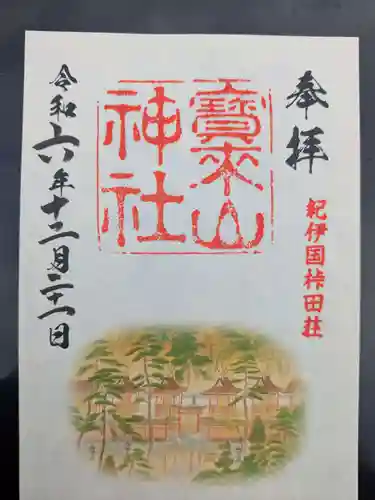 奉拝
紀伊国桛田荘
寳来山
神社
令和六年十二月二十一日